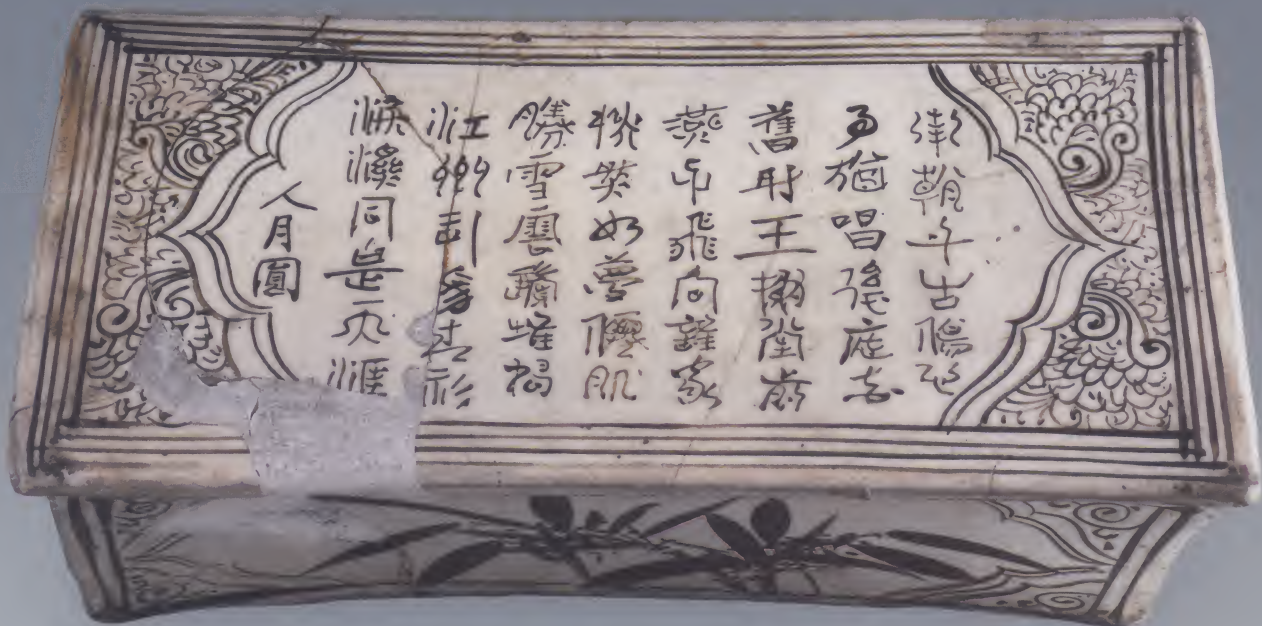 南朝千古傷心
事猶唱後庭花
舊時王謝堂前
燕子飛向誰家
恍然如夢僊肌
勝雪雲鬢堆鴉
江州司馬青衫
淚濕同是天涯
人月圓